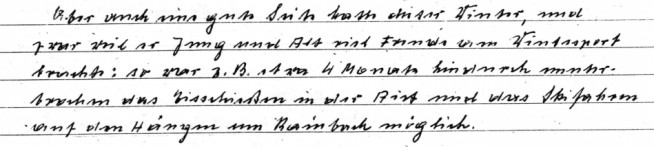 Aber auch eine gute Seite hatte dieser Winter, und
zwar weil er Jung und Alt viel Freude am Wintersport
brachte; so war z. B. etwa 4 Monate hindurch ununter-
brochen das Eisschießen in der Aist und das Skifahren
auf den Hängen um Rainbach möglich.